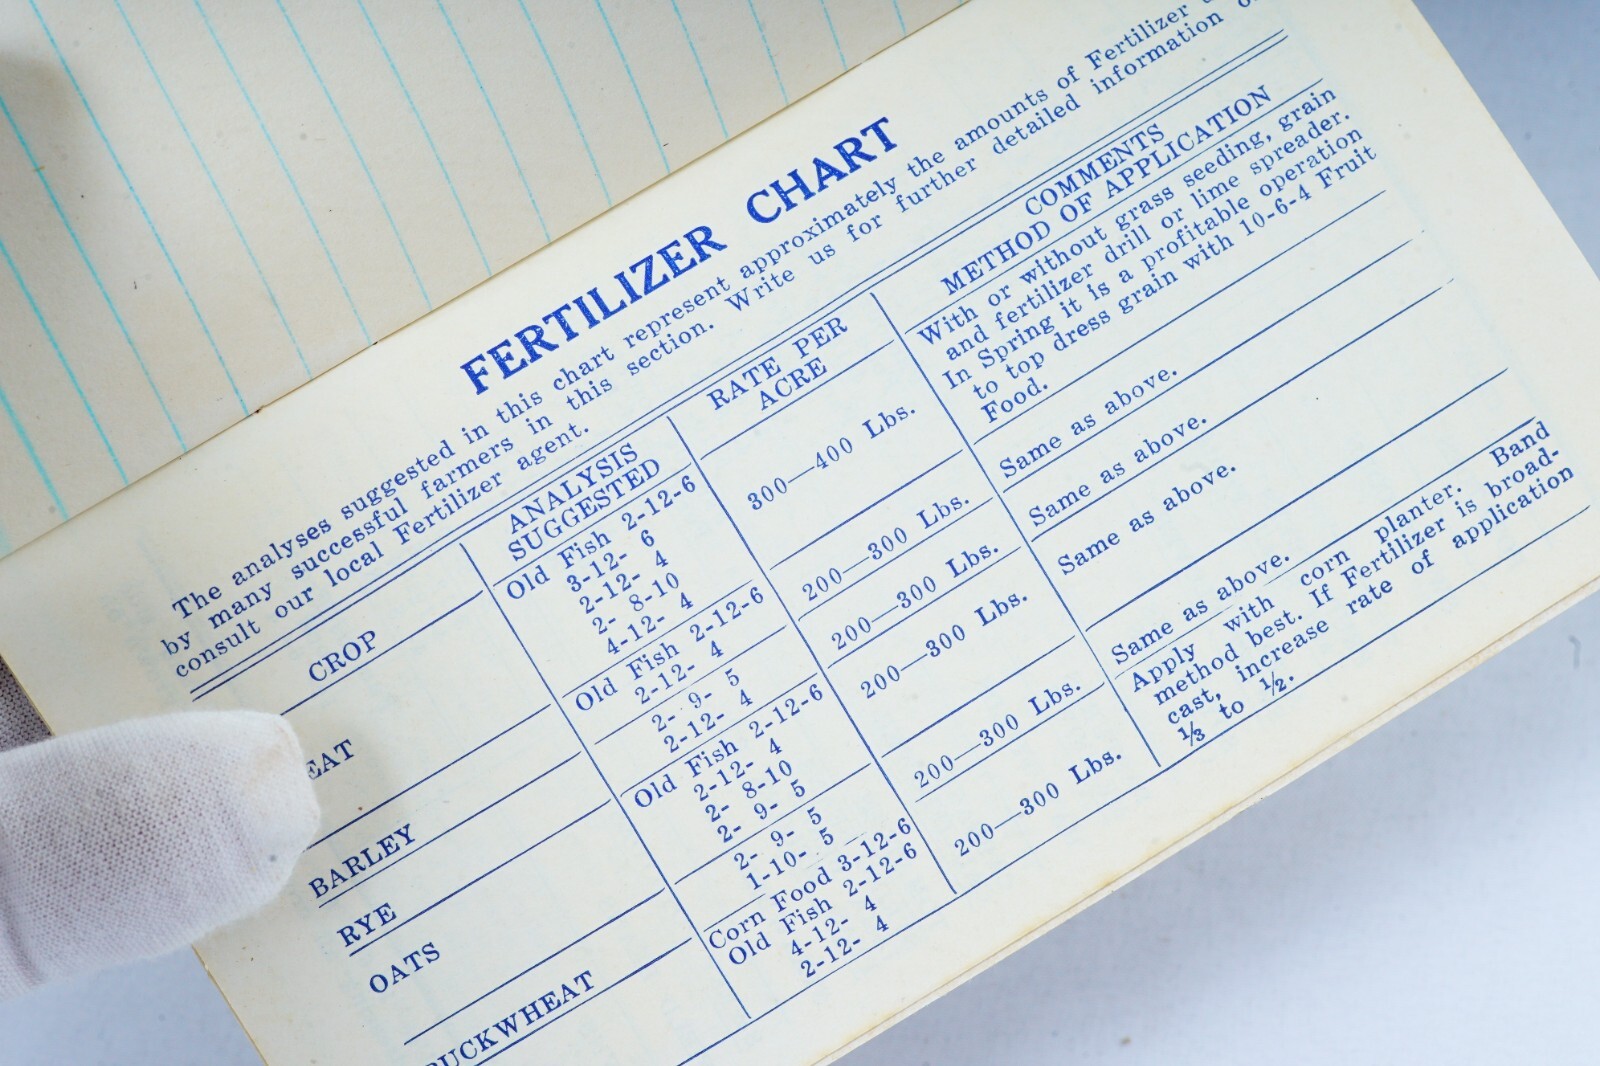 FERTILIZER CHART
The analyses suggested in this chart represent approximately the amounts of Fertilizer
by many successful farmers in this section. Write us for further detailed information
consult our local Fertilizer agent.
CROP
ANALYSIS
SUGGESTED
RATE PER
ACRE
COMMENTS
METHOD OF APPLICATION
EAT
Old Fish 2-12-6
3-12- 6
2-12- 4
2- 8-10
4-12- 4
300—400 Lbs.
With or without grass seeding, grain
and fertilizer drill or lime spreader.
In Spring it is a profitable operation
to top dress grain with 10-6-4 Fruit
Food.
BARLEY
Old Fish 2-12-6
2-12- 4
200—300 Lbs.
Same as above.
RYE
2- 9- 5
2-12- 4
200—300 Lbs.
Same as above.
OATS
Old Fish 2-12-6
2-12- 4
2- 8-10
2- 9- 5
200—300 Lbs.
Same as above.
BUCKWHEAT
2- 9- 5
1-10- 5
200—300 Lbs.
Same as above.
Corn Food 3-12-6
Old Fish 2-12-6
4-12- 4
2-12- 4
200—300 Lbs.
Apply with corn planter. Band
method best. If Fertilizer is broad-
cast, increase rate of application
⅓ to ½.